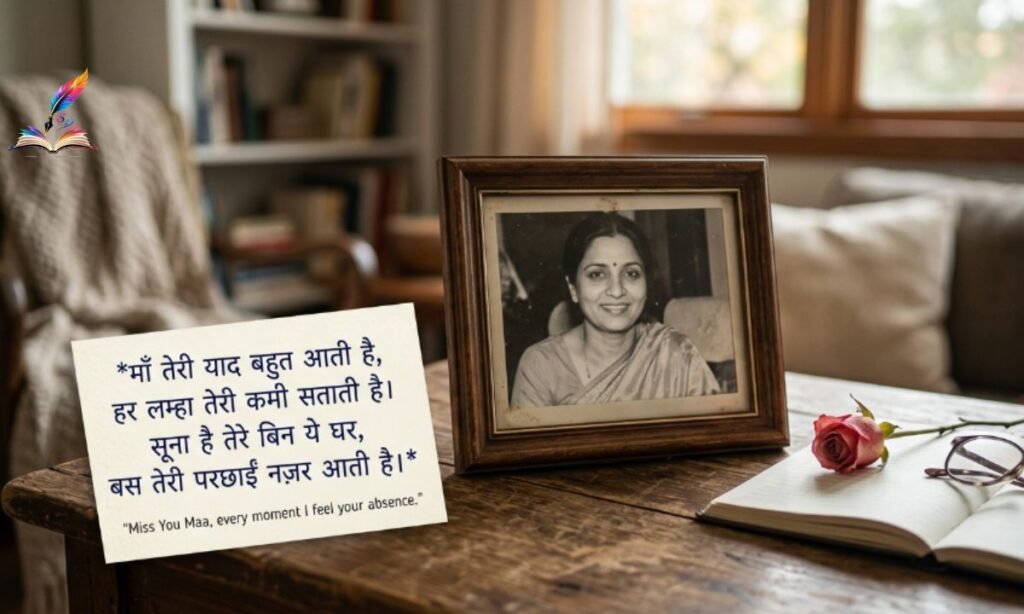 *माँ तेरी याद बहुत आती है,
हर लम्हा तेरी कमी सताती है।
सूना है तेरे बिन ये घर,
बस तेरी परछाईं नज़र आती है।*
"Miss You Maa, every moment I feel your absence."